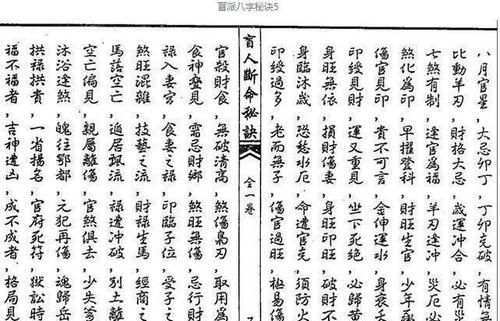 盲派八字秘诀5
八月官星，大忌卯丁，丁卯克破，有情無
比動羊刃，財格大忌，歲運冲合，必有災
七煞有制，逢官為禍，羊刃逢冲，災厄必
煞化為印，早擢登科，財旺生官，少年承
傷官見印，貴不可言，金伸運水，身衰天
印綬見財，運又重見，坐下死絶，必歸黄
身旺無依，損財傷妻，身旺印旺，破財
身臨沐歲，恐尅水厄，命遭官克，須防火
印綬過多，老而無子，傷官過旺，極易傷
盲人斷命秘訣 全一卷
官殺財食，無破清高，煞傷梟刃，取用為
食神叠見，需忌財鄉，煞旺無傷，忌行財
禄入妻宫，食妻之禄，印臨子位，受子之
煞旺混雜，技藝之流，財禄坐馬，經商之
馬落空亡，遁居飄流，禄遭冲破，别土離
空亡偏見，親屬離傷，官煞俱去，少失爹
沐浴逢煞，魄往鄷都，元犯再傷，魂歸岳
拱禄拱貴，一省揚名，官府死符，獄訟時
福不福者，吉神遭凶，成不成者，格局見